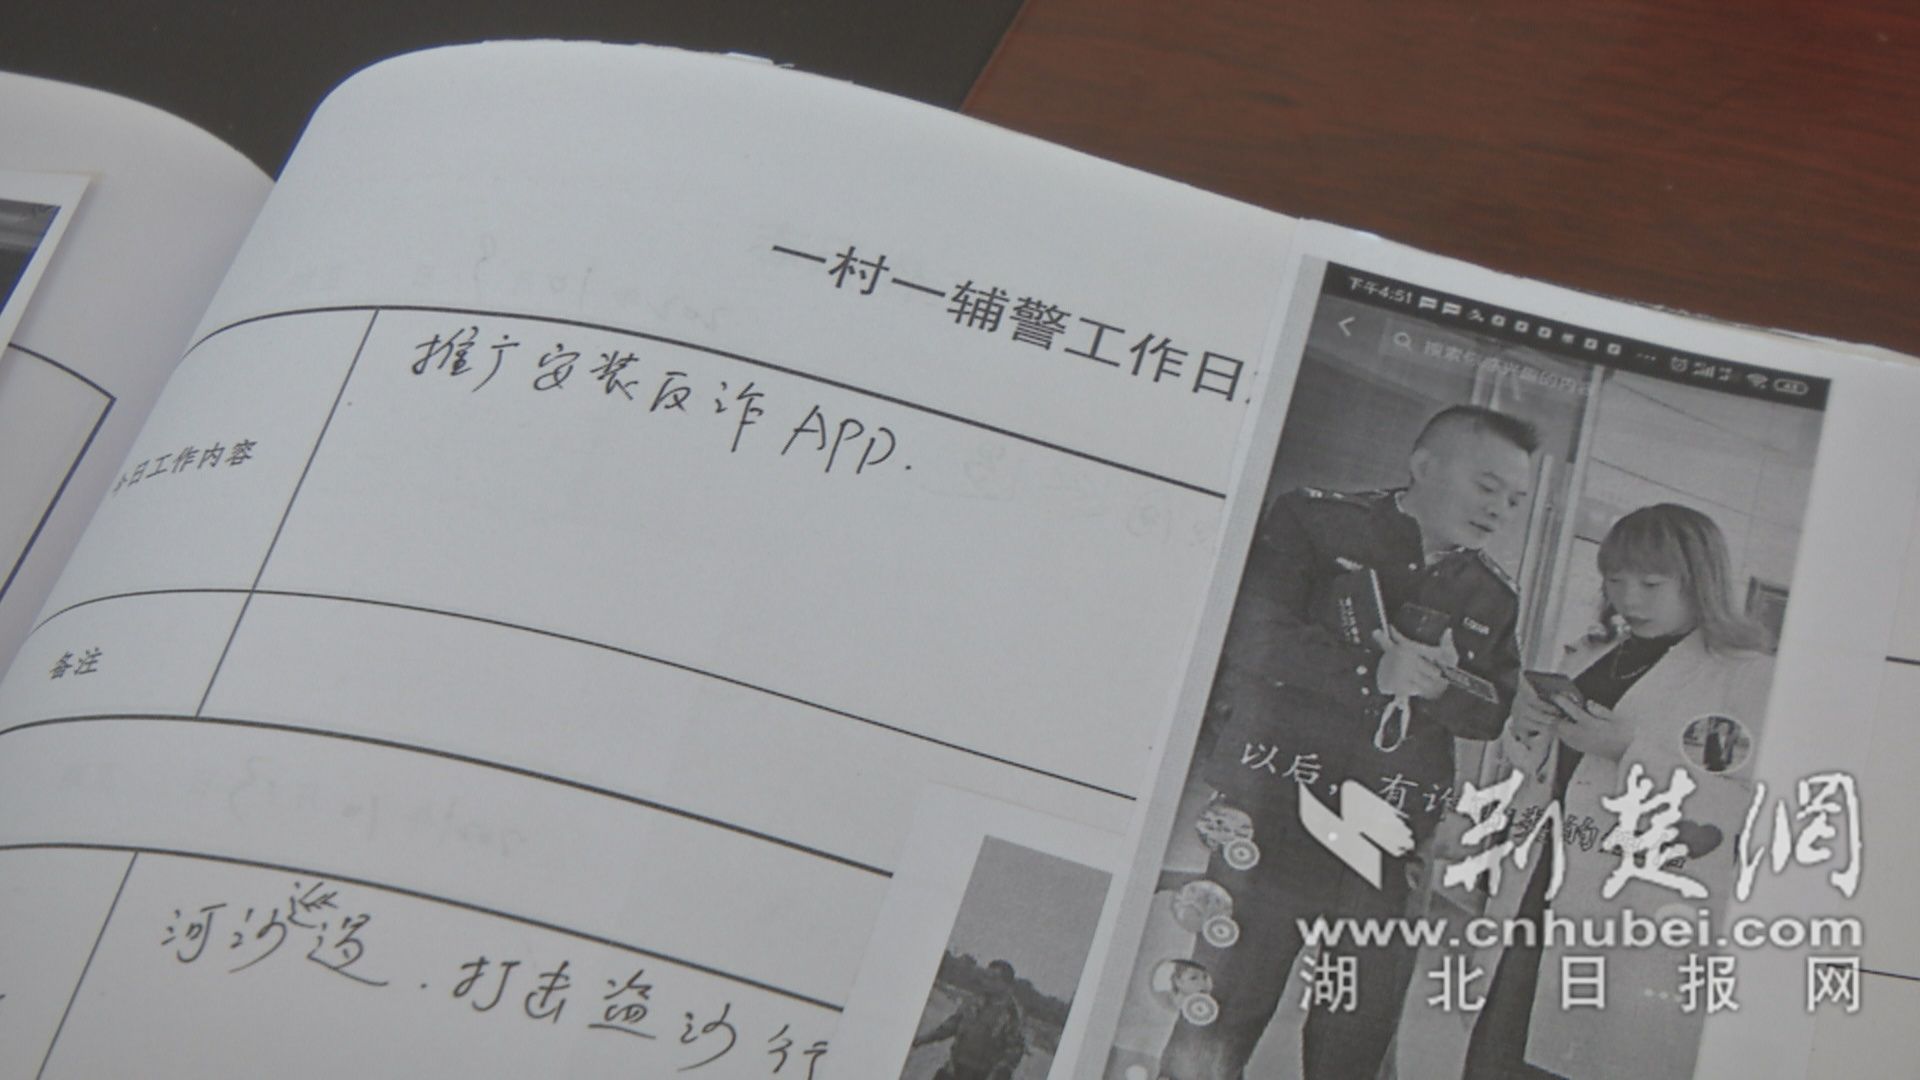 一村一辅警工作日
今日工作内容
推广安装反诈APP.
备注
河沙巡
打击盗沙行
下午4:51
搜索你感兴趣的内容
以后，有诈
荆楚网
www.cnhubei.com
湖北日报网